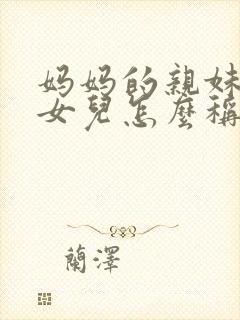 妈妈的親妹
女兒怎麼稱
蘭澤